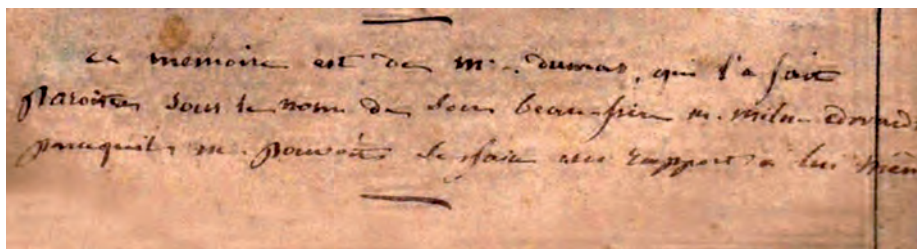 ce memoire est de mr. dumas, qui l'a fait
paroitre sous le nom de son beau-frere m. milne edward.
parcequil ne pouvoit se faire un rapport a lui mêm